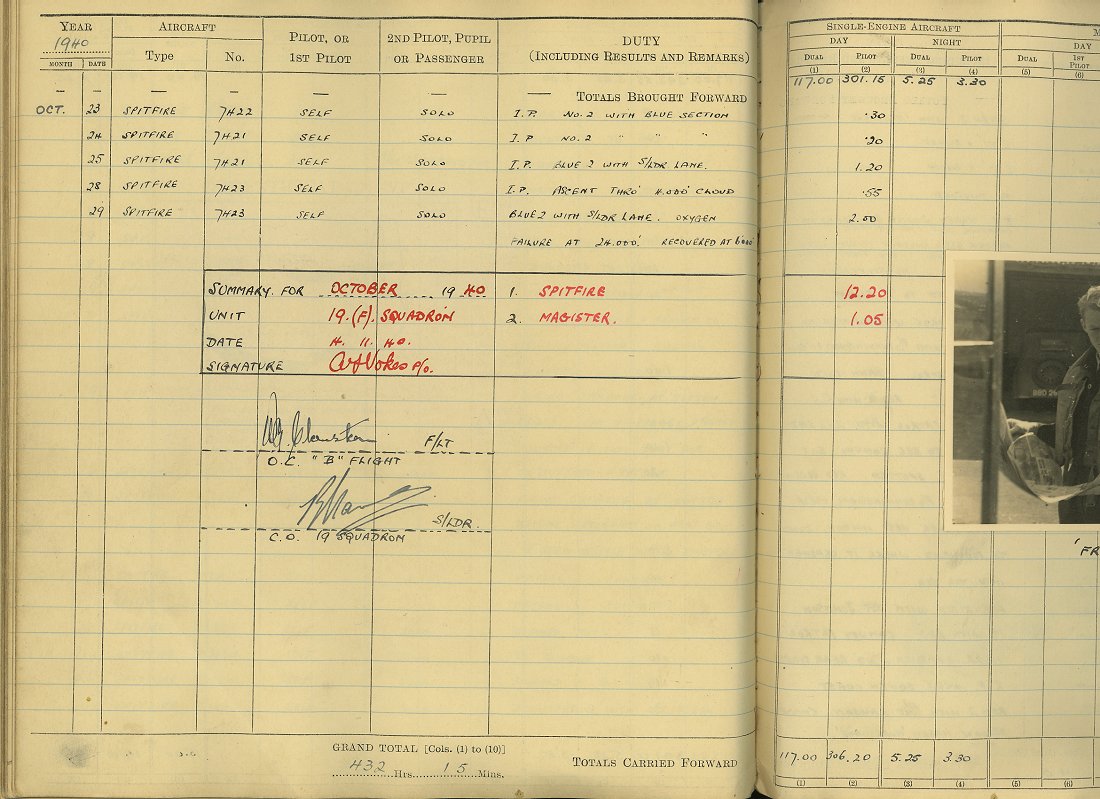 YEAR AIRCRAFT PILOT, OR 1ST PILOT 2ND PILOT, PUPIL OR PASSENGER DUTY (INCLUDING RESULTS AND REMARKS) SINGLE-ENGINE AIRCRAFT
1940 DAY NIGHT DAY
MONTH DATE Type No. DUAL PILOT DUAL PILOT DUAL 1ST PILOT
(1) (2) (3) (4) (5) (6)
— — — — — — — TOTALS BROUGHT FORWARD 117.00 301.15 5.25 3.30
OCT. 23 SPITFIRE 7H22 SELF SOLO I.P. NO.2 WITH BLUE SECTION .30
24 SPITFIRE 7H21 SELF SOLO I.P NO.2 " " " .20
25 SPITFIRE 7H21 SELF SOLO I.P. BLUE 2 WITH S/LDR LANE. 1.20
28 SPITFIRE 7H23 SELF SOLO I.P. ASCENT THRO' 4.000' CLOUD .55
29 SPITFIRE 7H23 SELF SOLO BLUE 2 WITH S/LDR LANE. OXYGEN 2.00
FAILURE AT 24.000'. RECOVERED AT 6000'
SUMMARY FOR OCTOBER 19 40 1. SPITFIRE 12.20
UNIT 19.(F). SQUADRON 2. MAGISTER. 1.05
DATE 4. 11. 40.
SIGNATURE Vokes P/O.
F/LT
O.C. "B" FLIGHT
S/LDR.
C.O. 19 SQUADRON
'FR
GRAND TOTAL [Cols. (1) to (10)]
432 Hrs. 15 Mins. TOTALS CARRIED FORWARD 117.00 306.20 5.25 3.30
(1) (2) (3) (4) (5) (6)